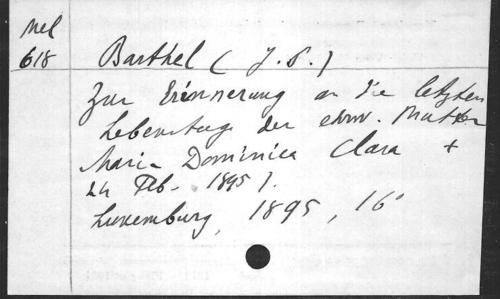 Mel
618
Barthel (J. P.)
Zur Erinnerung an die letzten
Lebenstage der ehrw. Mutter
Maria Dominica Clara +
24 Feb. 1895].
Luxemburg, 1895, 16°